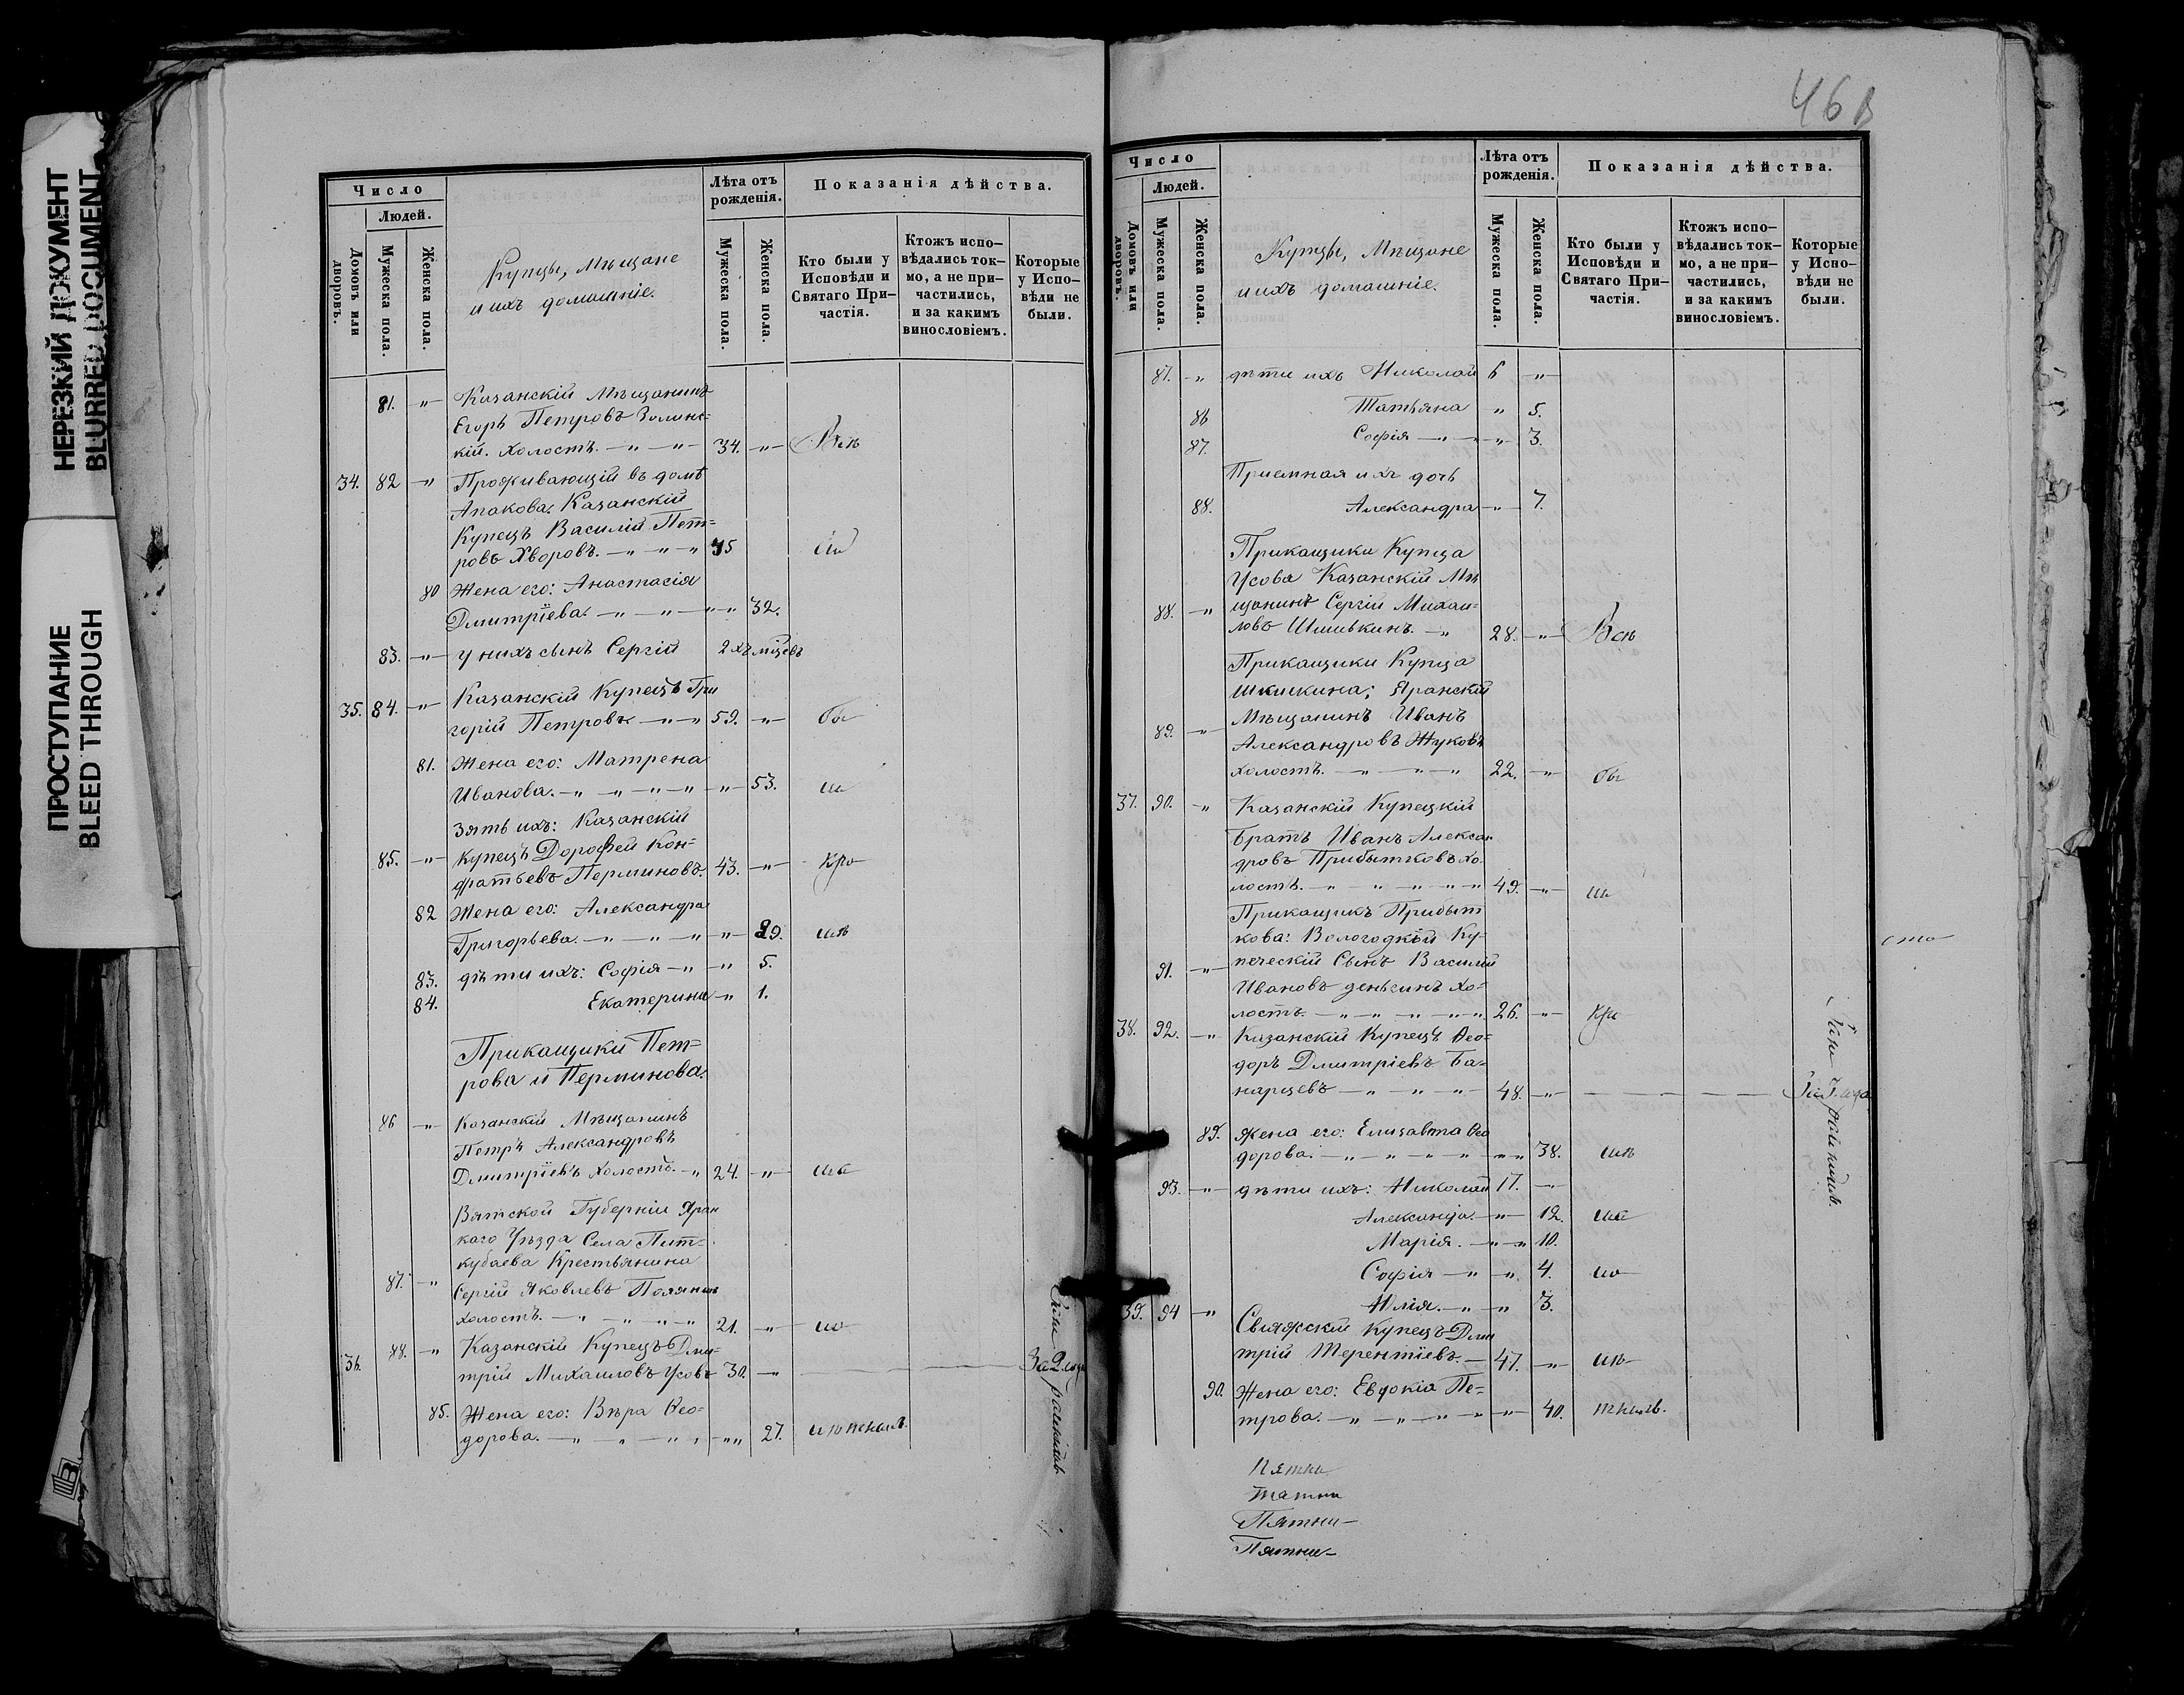 НЕРЕЗКИЙ ДОКУМЕНТ
BLURRED DOCUMENT
ПРОСТУПАНИЕ
BLEED THROUGH
Число
Людей.
Домовъ или дворовъ.
Мужеска пола.
Женска пола.
Купцы, Мѣщане
и ихъ домашніе.
Лѣта отъ рожденія.
Мужеска пола.
Женска пола.
Показанія дѣйства.
Кто были у Исповѣди и Святаго При-частія.
Ктожъ испо-вѣдались ток-мо, а не при-частились, и за какимъ винословіемъ.
Которые у Испо-вѣди не были.
81. " Казанскій Мѣщанинъ
Егоръ Петровъ Зилинс=
кій. Холостъ. " " 34. "
34. 82 " Проживающій въ домѣ
Апакова: Казанскій
Купецъ Василій Пет=
ровъ Хворовъ. " " "
80 Жена его: Анастасія
Дмитріева. " " " 32.
83. " у нихъ сынъ Сергій 2хъ
35. 84. " Казанскій Купецъ Гри
горій Петровъ " " 59. " бы
81. Жена его: Матрена
Иванова. " " " " " 53. ли
Зять ихъ: Казанскій
85. " Купецъ Дорофей Кон=
дратьевъ Перминовъ. 43. "
82 Жена его: Александра
Григорьева. " " " " 29.
83. дѣти ихъ: Софія " " 5.
84. Екатерина " 1.
Прикащики Пет=
рова и Перминова.
86 " Казанскій Мѣщанинъ
Петръ Александровъ
Дмитріевъ Холостъ. " 24. "
Вятской Губерніи Яран
каго Уѣзда Села Пит=
кубаева Крестьянина
87. " Сергій Яковлевъ
холостъ. " " " " 21. "
36. 88. " Казанскій Купецъ Дми=
трій Михаиловъ Усовъ 30. " За 2.
85. Жена его: Вѣра Ѳео=
дорова. " " " " 27.
46
Число
Людей.
Домовъ или дворовъ.
Мужеска пола.
Женска пола.
Купцы, Мѣщане
и ихъ домашніе.
Лѣта отъ рожденія.
Мужеска пола.
Женска пола.
Показанія дѣйства.
Кто были у Исповѣди и Святаго При-частія.
Ктожъ испо-вѣдались ток-мо, а не при-частились, и за какимъ винословіемъ.
Которые у Испо-вѣди не были.
87. " дѣти ихъ Николай 6 "
86 Татьяна " 5.
87. Софія " " 3.
Приемная ихъ дочь
88. Александра " 7.
Прикащики Купца
Усова Казанскій Мѣ
88. " щанинъ Сергій Михаи-
ловъ Шишкинъ. " 28. " Всѣ
Прикащики Купца
Шкикина; Яранскій
89. " Мѣщанинъ Иванъ
Александровъ Жуковъ
холостъ. " " " 22. " бы
37. 90. " Казанскій Купецкій
Братъ Иванъ Алексан
дровъ Прибытковъ хо
лостъ. " " " " " 49. " ли
Прикащикъ Прибыт
кова: Вологодкій Ку-
91. " печескій Сынъ Василій
Ивановъ деньгинъ хо=
лостъ. " " " " " 26. "
38. 92. " Казанскій Купецъ Ѳео=
доръ Дмитріевъ Ба=
нарцевъ " " " " 48. "
89. Жена его: Елизавта Ѳео
дорова. " " " " " " 38.
93. " дѣти ихъ: Николай 17. "
Александра. " 12.
Марія. " " 10.
Софія " " 4.
Юлія. " " 3.
39. 94 " Свіяжскій Купецъ Дми
трій Терентіевъ. 47. "
90. Жена его: Евдокіа Пе=
трова. " " " " " 40.
Пятни
Пятни
Пятни